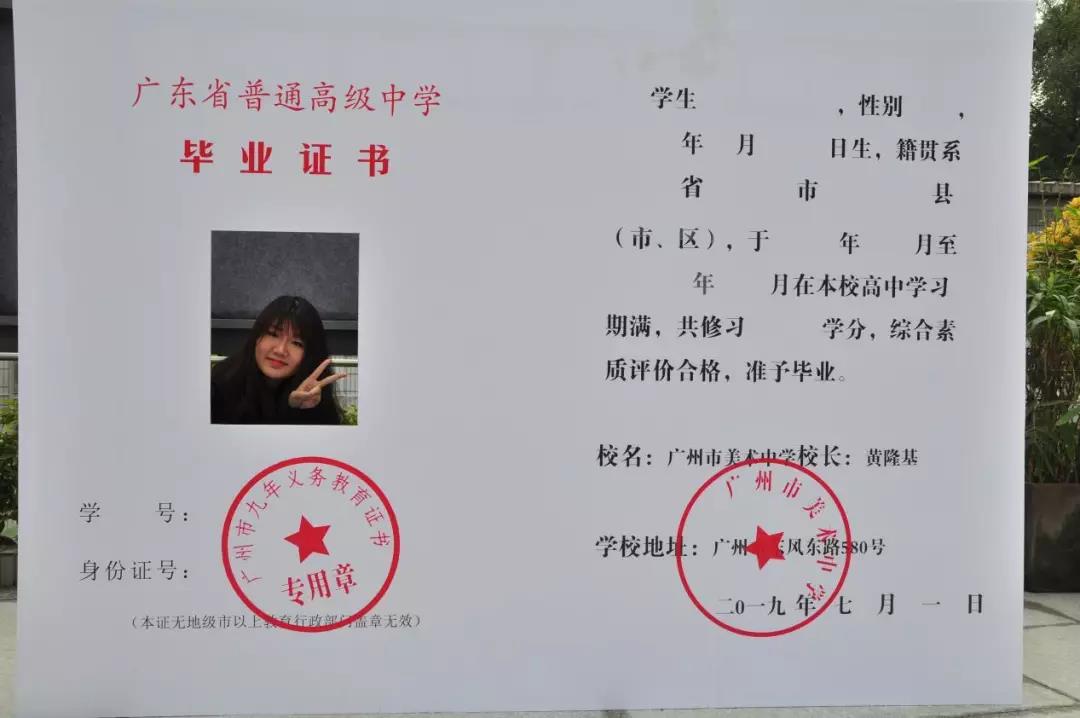 广东省普通高级中学
毕业证书
学号：
身份证号：
广州市九年义务教育证书
专用章
（本证无地级市以上教育行政部门盖章无效）
学生 ，性别 ，
年 月 日生，籍贯系
省 市 县
（市、区），于 年 月至
年 月在本校高中学习
期满，共修习 学分，综合素
质评价合格，准予毕业。
校名：广州市美术中学校长：黄隆基
学校地址：广州市东风东路580号
广州市美术中学
二0一九年七月一日